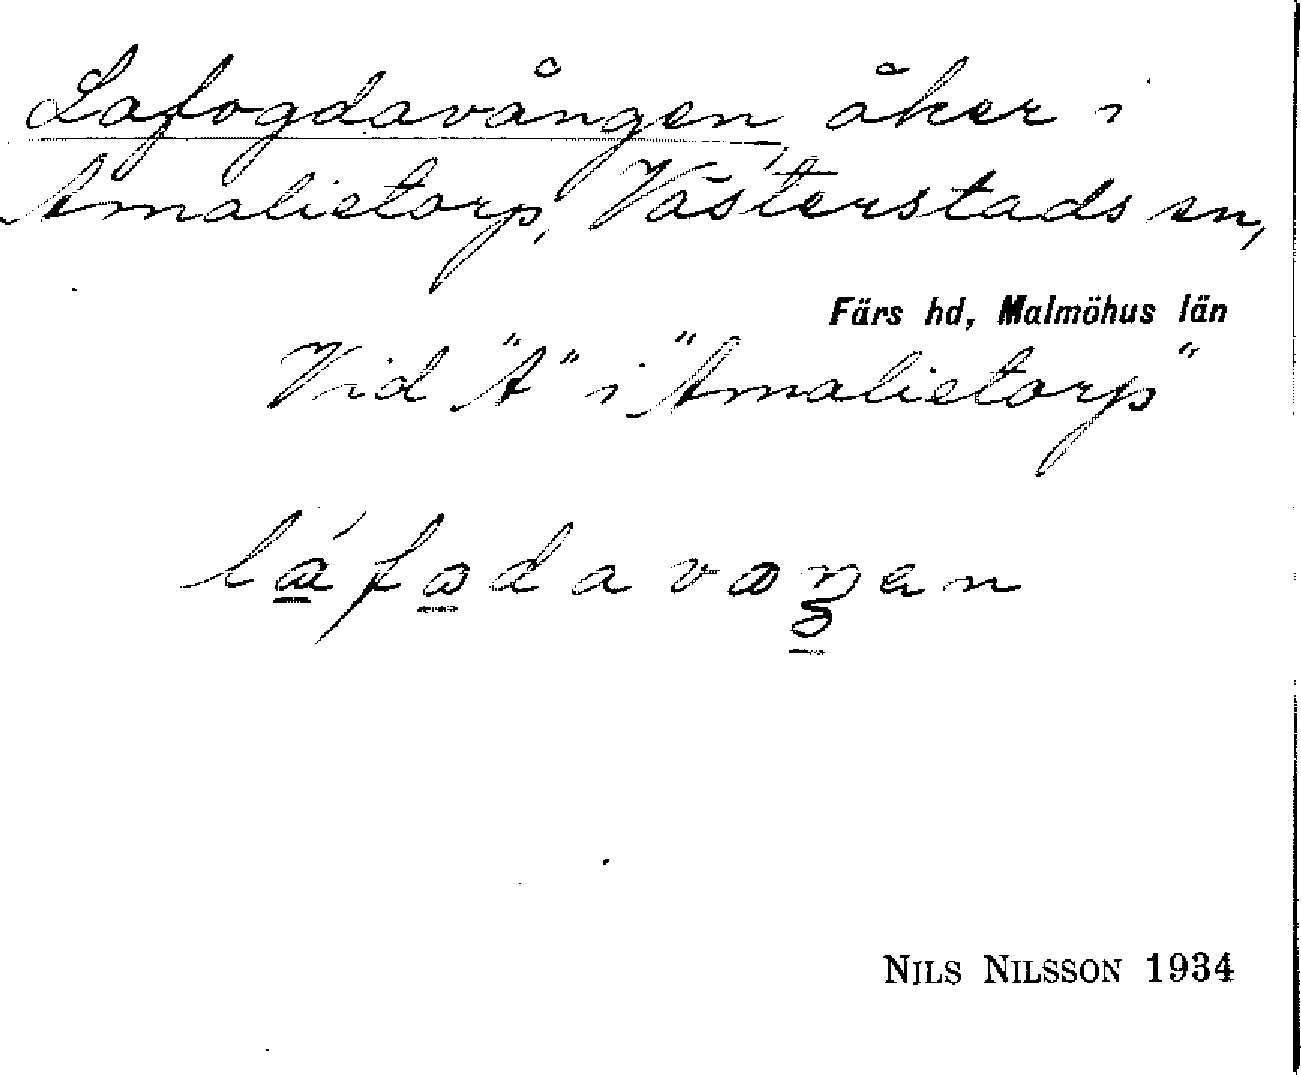 Lafogdavången, åker i
Amalietorp, Västerstads sn,
Färs hd, Malmöhus län
Vid "A" i "Amalietorp"
láfodavaŋen
NILS NILSSON 1934